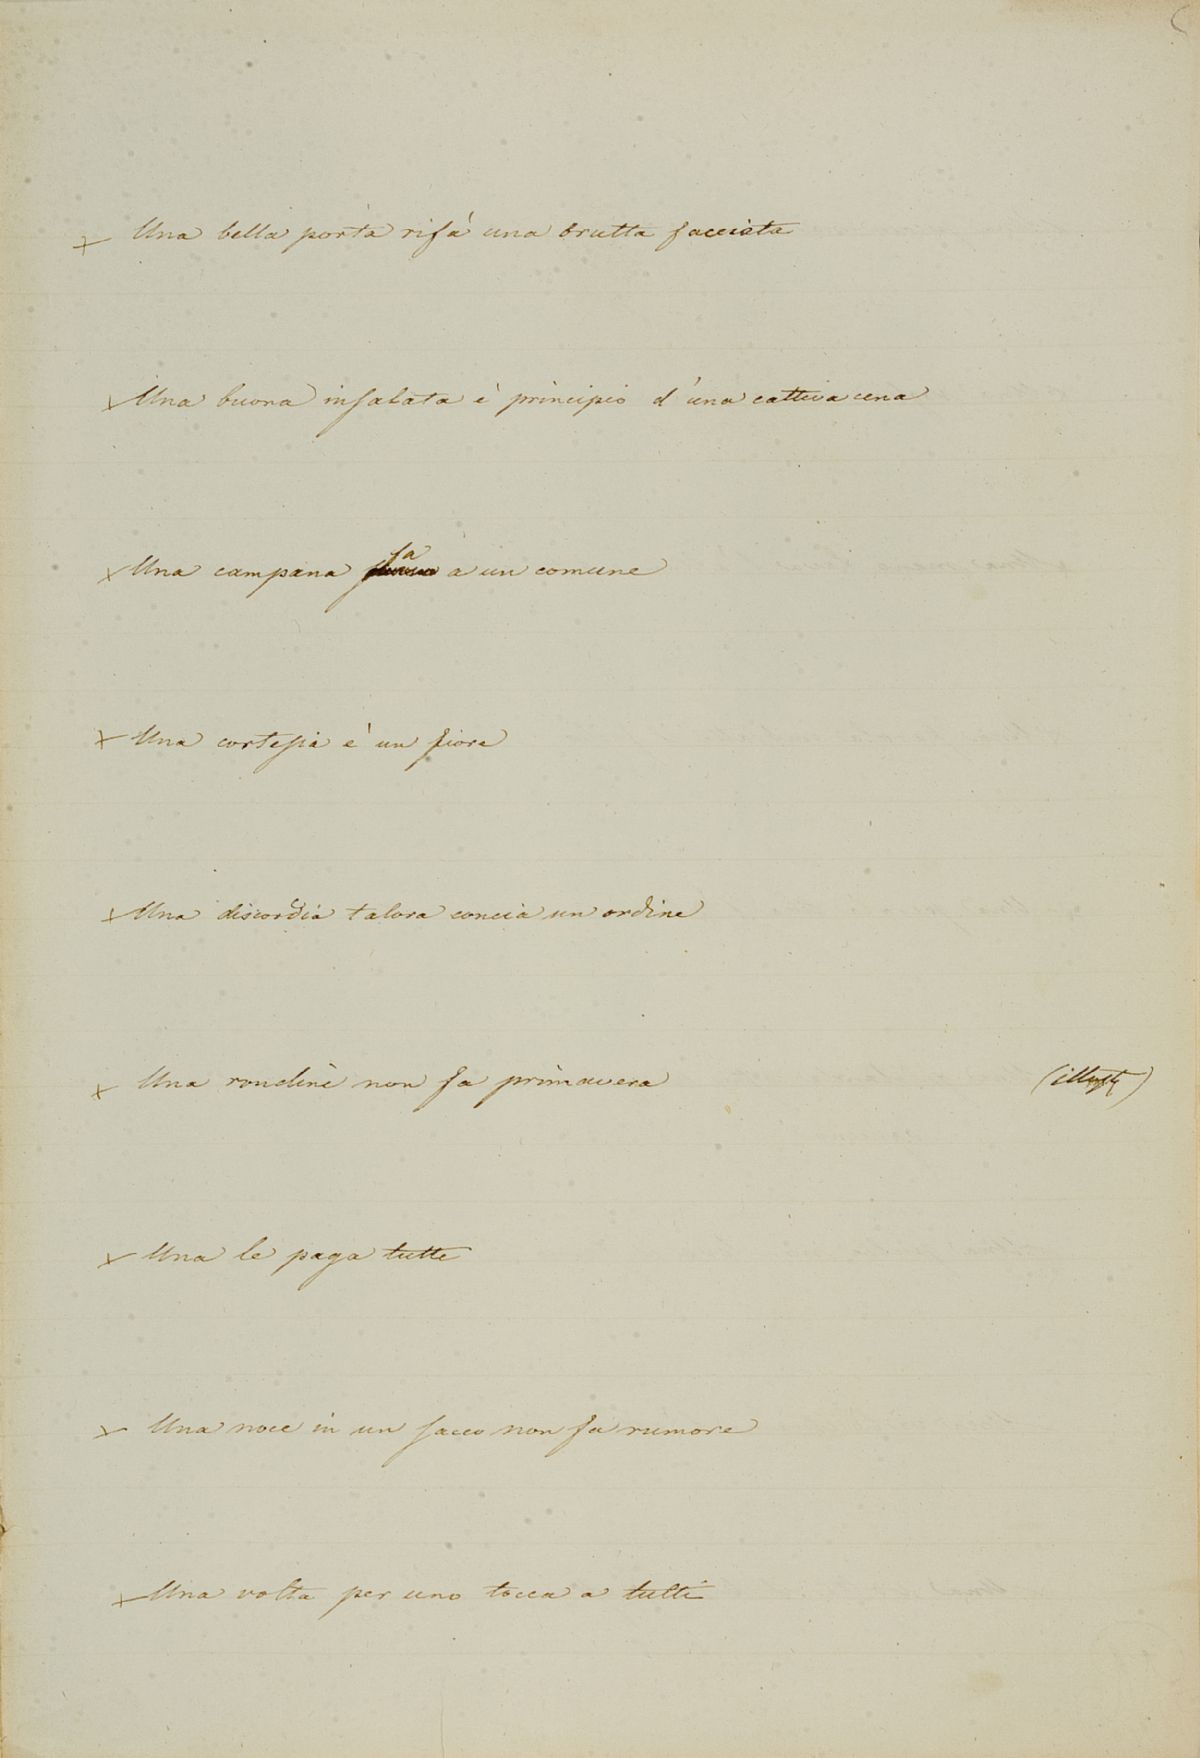 Una bella porta rifà una brutta facciata
Una buona insalata è principio d'una cattiva cena
Una campana fa a un comune
Una cortesia è un fiore
Una discordia talora concia un ordine
Una rondine non fa primavera (illust)
Una le paga tutte
Una noce in un sacco non fa rumore
Una volta per uno tocca a tutti